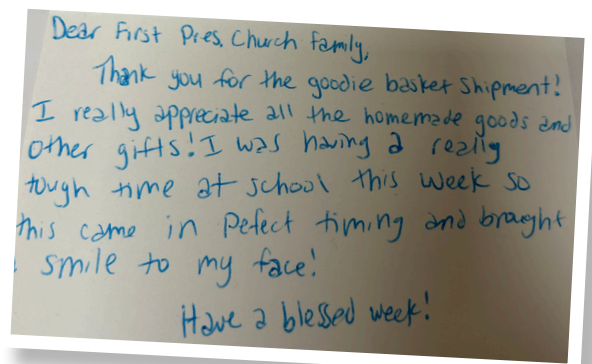 Dear First Pres. Church family,
Thank you for the goodie basket shipment!
I really appreciate all the homemade goods and
other gifts! I was having a really
tough time at school this week so
this came in Pefect timing and braght
smile to my face!
Have a blessed week!